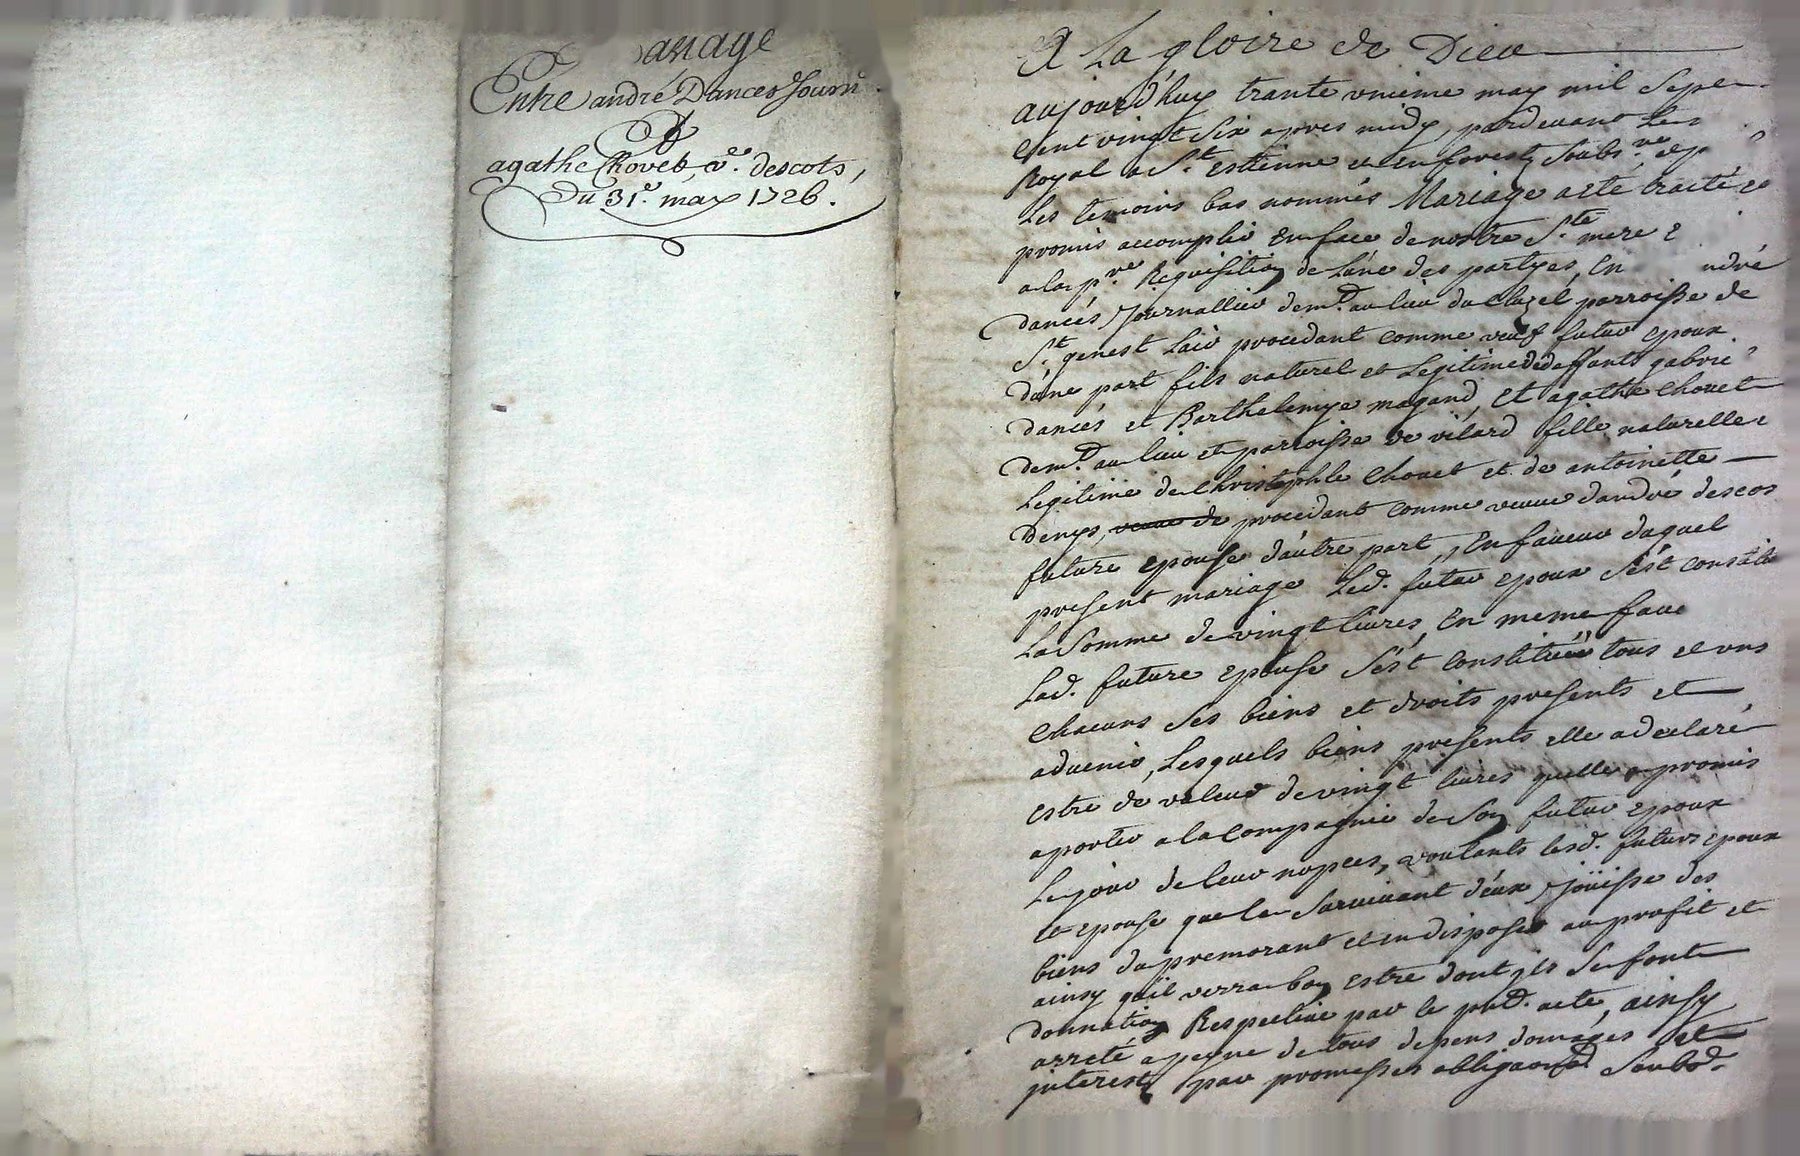 ariage
Entre andré Dances Journ
Et
agathe Chovet, ve. descots,
Du 31e. may 1726.
A La gloire de Dieu
aujourd'huy trante vnieme may mil Sept
Cent vingt Six apres midy, pardeuant Le
Royal a St. estienne et en forest Soubs.ne, et p
Les temoins bas nommés Mariage a esté traité et
promis accomplir En face de nostre Ste. mere E
a la pre. Requisition de L'une des partyes, En ndré
dancés Journallier demt. au lieu du Cluzel parroisse de
St. genest Lair procedant comme veuf futur epoux
d'une part fils naturel et Legitime de deffunts gabrie
dancés et Barthelemye magand, Et agathe Chouet
demt. au lieu et parroisse de vilard fille naturelle e
Legitime de Christophle Chouet et de antoinette
Denys, veuue de procedant comme veuue d'andré descos
future epouse d'autre part, En faueur duquel
present mariage Led. futur epoux S'est constitu
La Somme de vingt liures, En meme faue
Lad. future epouse S'est Constituée tous et vns
Chacuns Ses biens et droits presents et
aduenir, Lesquels biens presents elle a declaré
estre de valeur de vingt liures quelle a promis
aporter a la Compagnie de Son futur epoux
Le jour de leur nopces, voulants lesd. futurs epoux
et epouse que le Suruiuant d'eux Joüisse des
biens du premorant et en disposer au profit et
ainsy qu'il verra bon estre dont ils Se font
donnation Respectiue par le pnt. acte, ainsy
arreté a peyne de tous depens domages et
jnterest par promesses obligaons Soubs